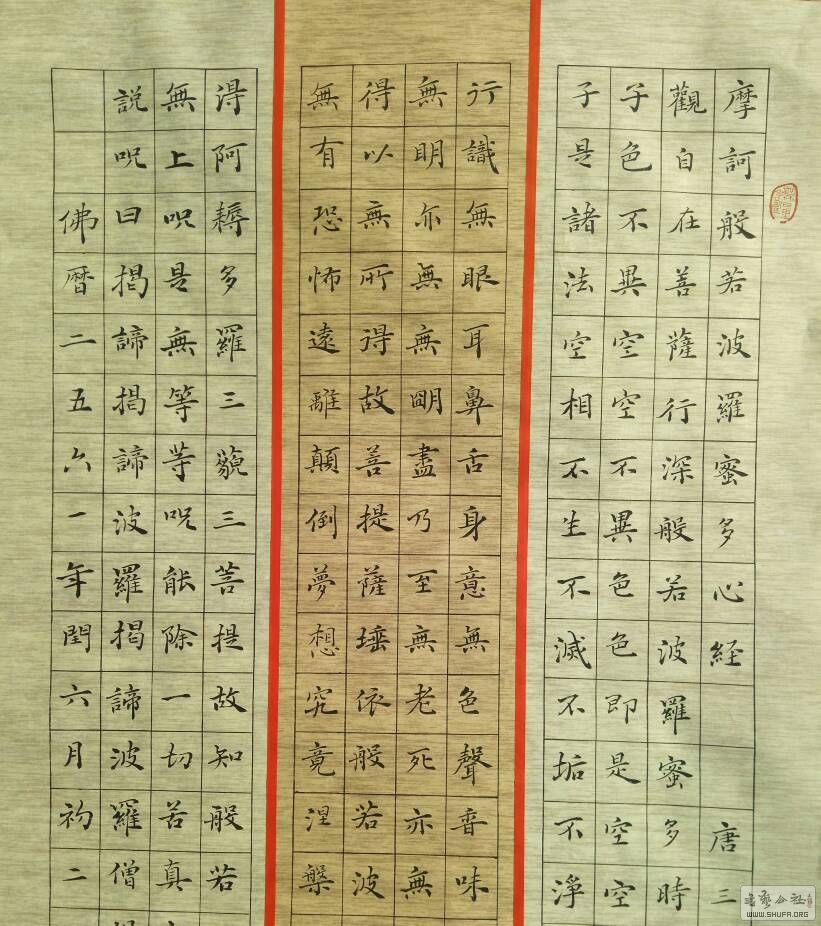 摩訶般若波羅蜜多心経 唐三
觀自在菩薩行深般若波羅蜜多時
子色不異空空不異色色即是空空
子是諸法空相不生不滅不垢不淨
行識無眼耳鼻舌身意無色聲香味
無明亦無無明盡乃至無老死亦無
得以無所得故菩提薩埵依般若波
無有恐怖遠離顛倒夢想究竟涅槃
淂阿耨多羅三藐三菩提故知般若
無上呪是無等等呪能除一切苦真
説呪曰揭諦揭諦波羅揭諦波羅僧
佛暦二五六一年閏六月初二
WWW.SHUFA.ORG